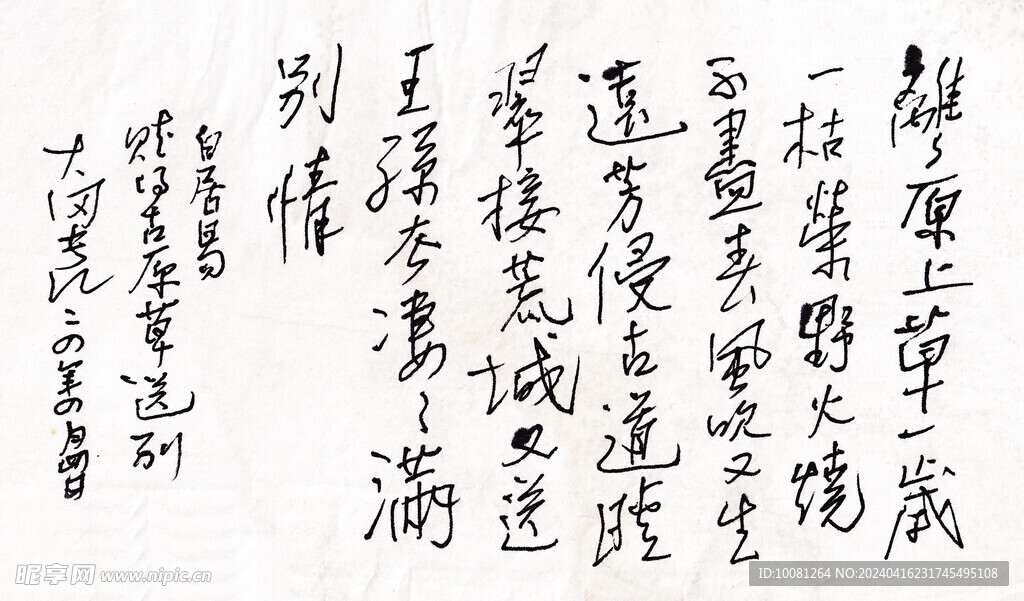 離〻原上草一歲
一枯榮野火燒
不盡春風吹又生
遠芳侵古道晴
翠接荒城又送
王孫去凄〻滿
別情
白居易
賦得古原草送別
昵享网 www.nipic.cn
ID:10081264 NO:20240416231745495108